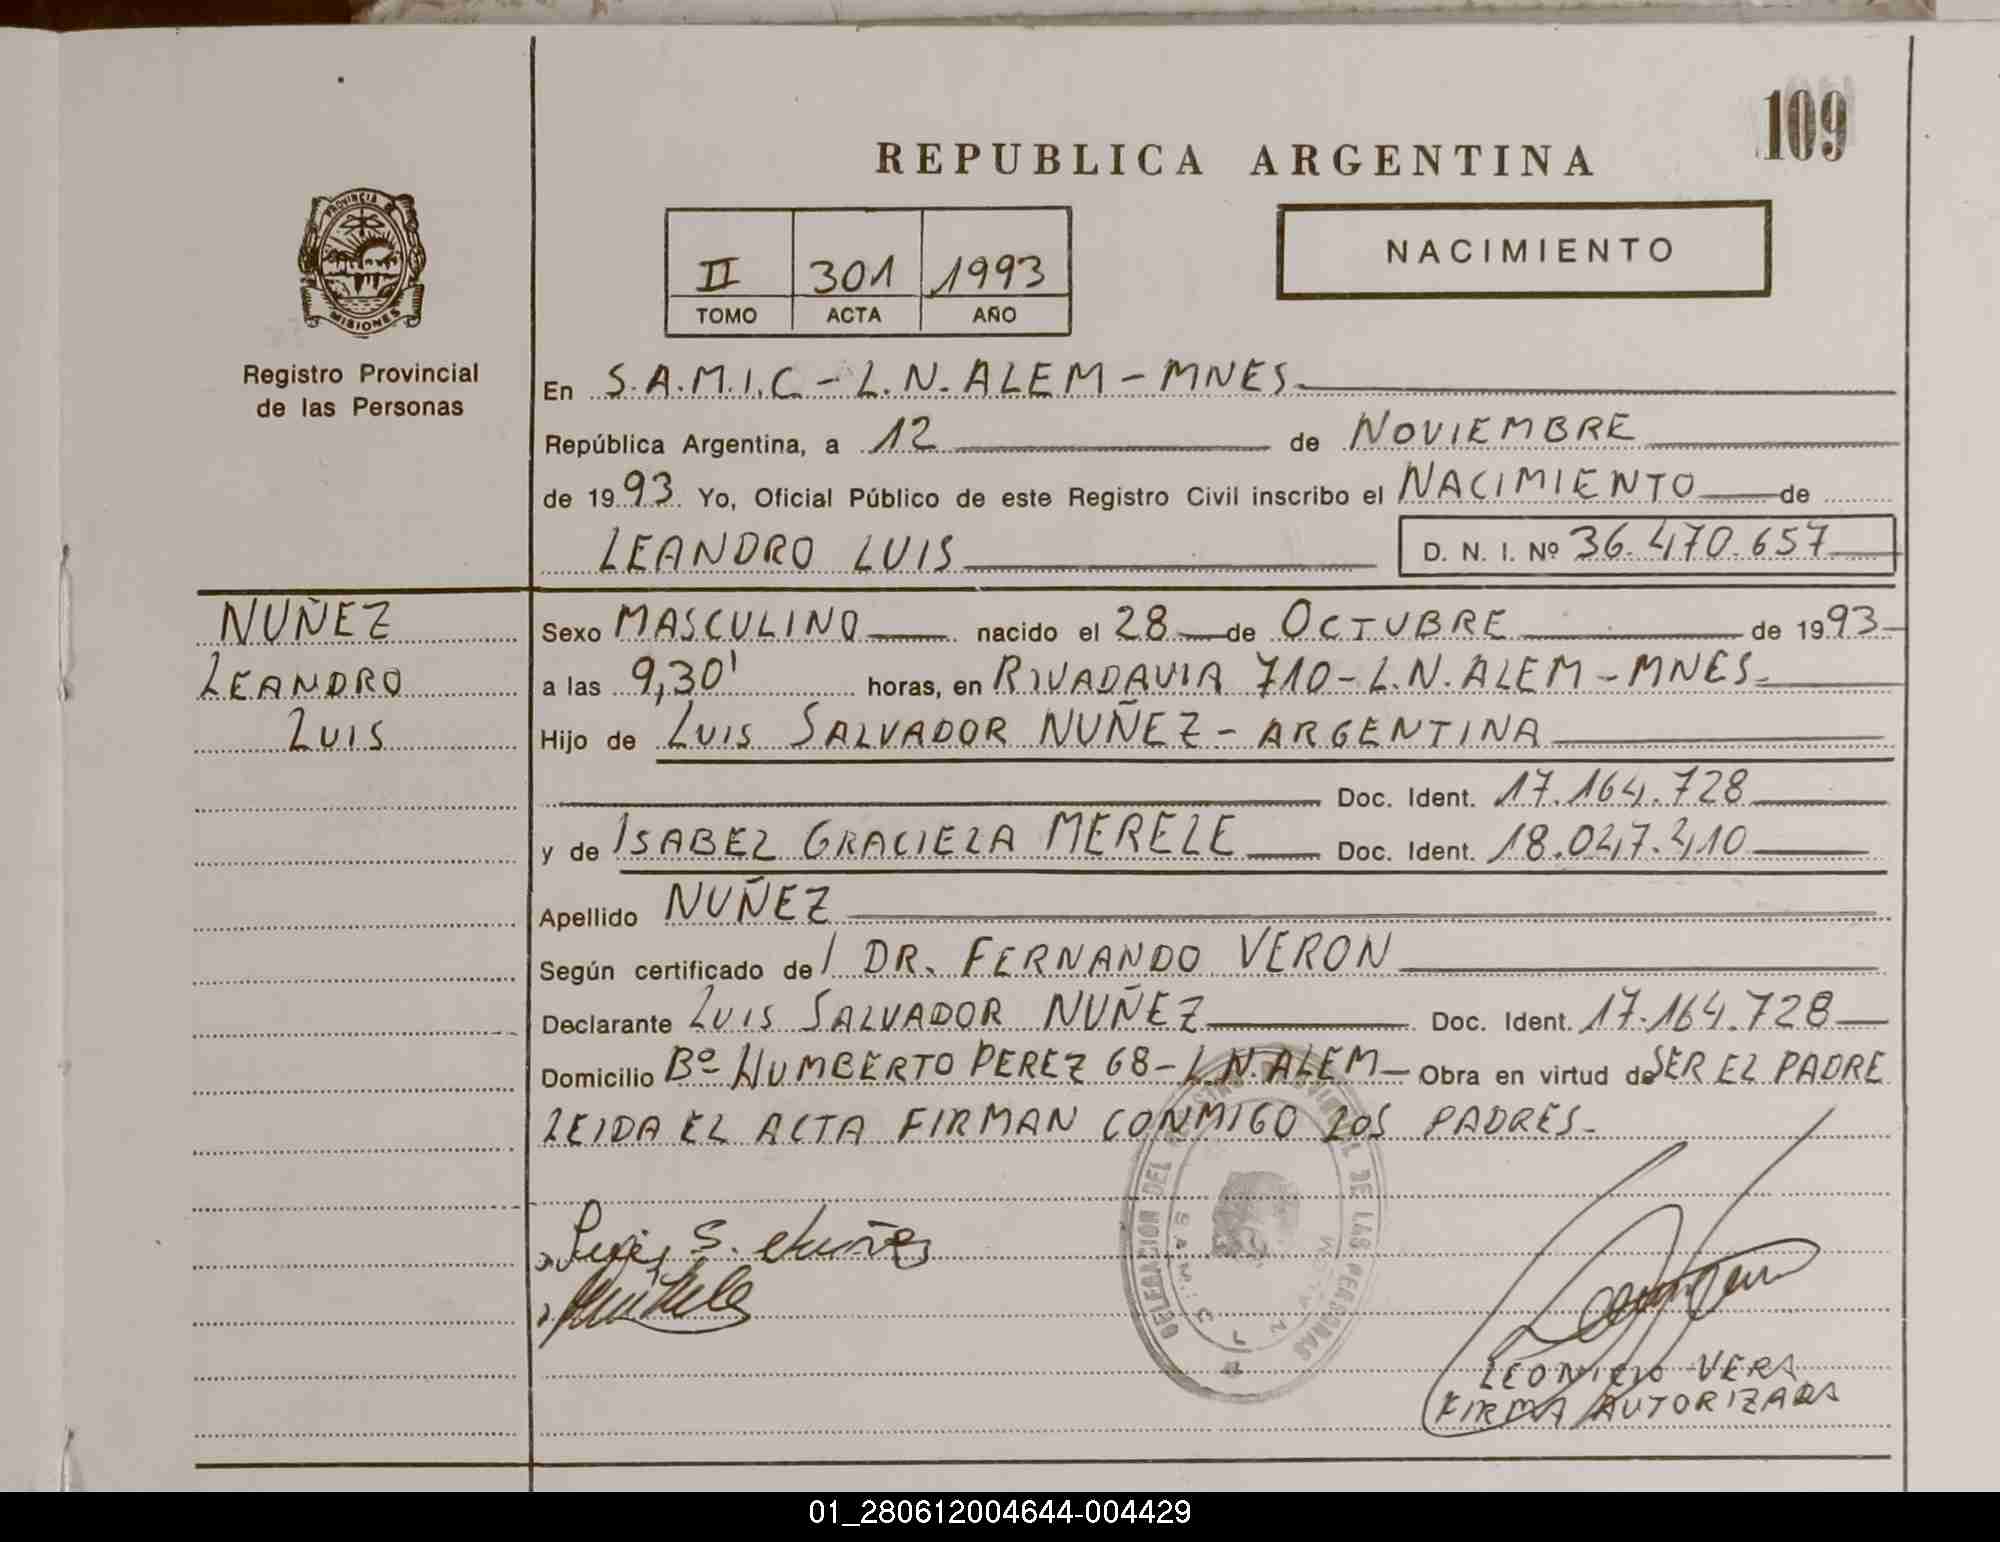 109
REPUBLICA ARGENTINA
PROVINCIA DE
MISIONES
Registro Provincial
de las Personas
II 301 1993
TOMO ACTA AÑO
NACIMIENTO
En S.A.M.I.C - L.N. ALEM - MNES.
República Argentina, a 12 de NOVIEMBRE
de 1993. Yo, Oficial Público de este Registro Civil inscribo el NACIMIENTO de
LEANDRO LUIS D. N. I. Nº 36.470.657
NUÑEZ
LEANDRO
LUIS
Sexo MASCULINO nacido el 28 de OCTUBRE de 1993
a las 9,30' horas, en RIVADAVIA 710 - L.N. ALEM - MNES.
Hijo de LUIS SALVADOR NUÑEZ - ARGENTINA
Doc. Ident. 17.164.728
y de ISABEL GRACIELA MERELE Doc. Ident. 18.047.410
Apellido NUÑEZ
Según certificado de / DR. FERNANDO VERON
Declarante LUIS SALVADOR NUÑEZ Doc. Ident. 17.164.728
Domicilio Bº HUMBERTO PEREZ 68 - L.N. ALEM - Obra en virtud de SER EL PADRE
LEIDA EL ACTA FIRMAN CONMIGO LOS PADRES.
Luis S. Nuñez
DELEGACION DEL REGISTRO PROVINCIAL DE LAS PERSONAS
S.A.M.I.C. L. N. ALEM
LEONICIO VERA
FIRMA AUTORIZADA
01_280612004644-004429